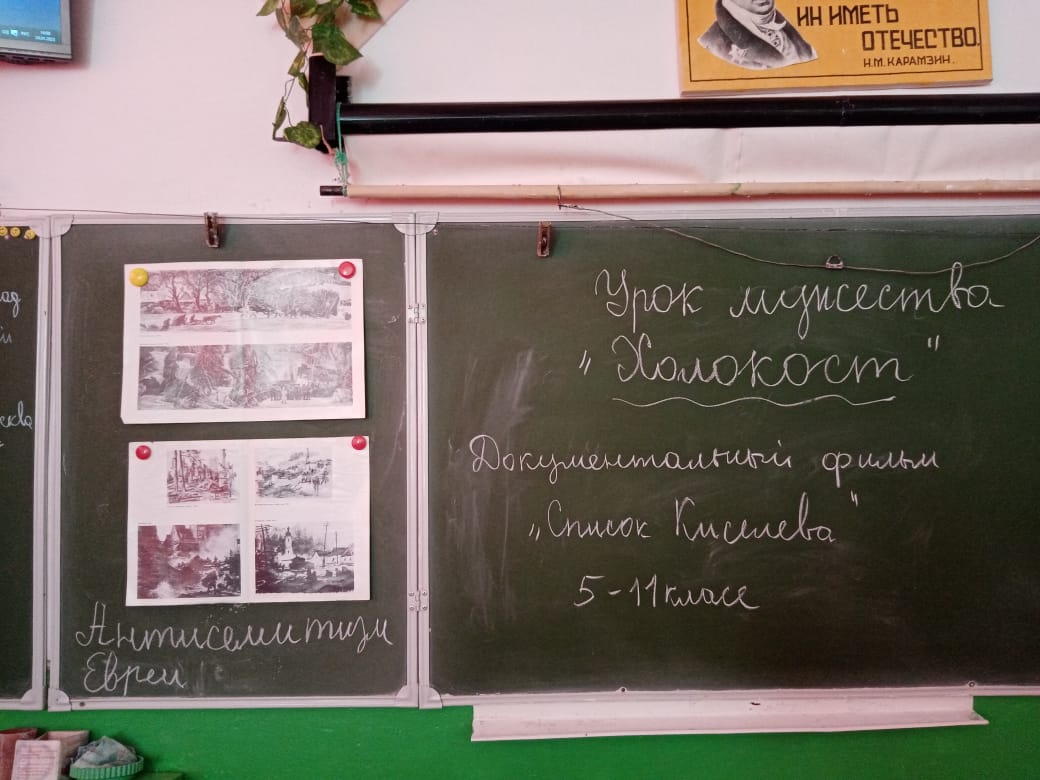 ИН ИМЕТЬ
ОТЕЧЕСТВО.
Н.М. КАРАМЗИН.
Урок мужества
„Холокост"
Документальный фильм
„Список Киселева"
5-11 класс
Антисемитизм
Евреи